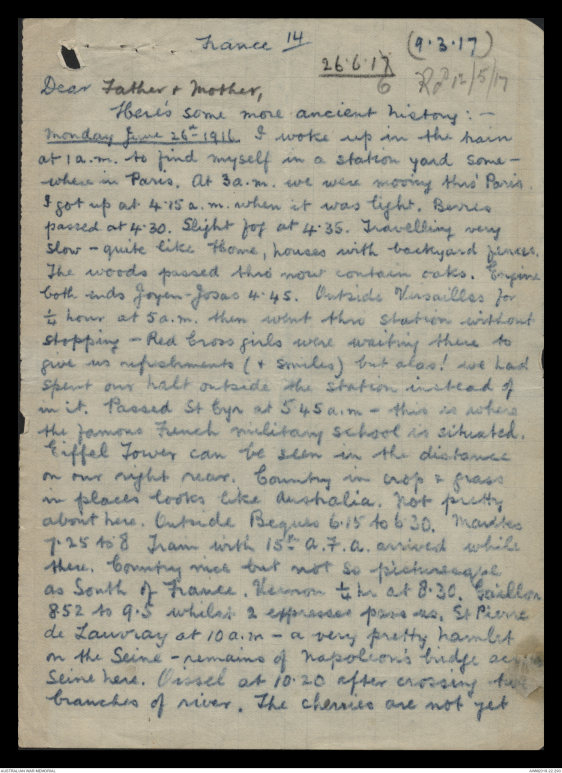 France 14
(9.3.17)
26.6.17
6
Rd 12/5/17
Dear Father & Mother,
Here's some more ancient history:-
Monday June 26th 1916. I woke up in the train
at 1 a.m. to find myself in a station yard some-
where in Paris. At 3 a.m. we were moving thro' Paris.
I got up at 4.15 a.m. when it was light.
passed at 4.30. Slight fog at 4.35. Travelling very
slow - quite like Home, houses with backyard fences.
The woods passed thro now contain oaks. Engine
both ends Jouy-en-Josas 4.45. Outside Versailles for
¼ hour at 5 a.m. then went thro station without
stopping - Red Cross girls were waiting there to
give us refreshments (& smiles) but alas! we had
spent our halt outside the station instead of
in it. Passed St Cyr at 5.45 a.m - this is where
the famous French military school is situated.
Eiffel Tower can be seen in the distance
on our right rear. Country in crop & grass
in places looks like Australia. Not pretty
about here. Outside 6.15 to 6.30. Mantes
7.25 to 8 Train with 15th A.F.A. arrived while
there. Country nice but not so picturesque
as South of France. Vernon ¼ hr at 8.30. Gaillon
8.52 to 9.5 whilst 2 expresses pass us. St Pierre
de Lauvray at 10 a.m - a very pretty hamlet
on the Seine - remains of Napoleon's bridge across
Seine here. Oissel at 10.20 after crossing two
branches of river. The cherries are not yet
AUSTRALIAN WAR MEMORIAL